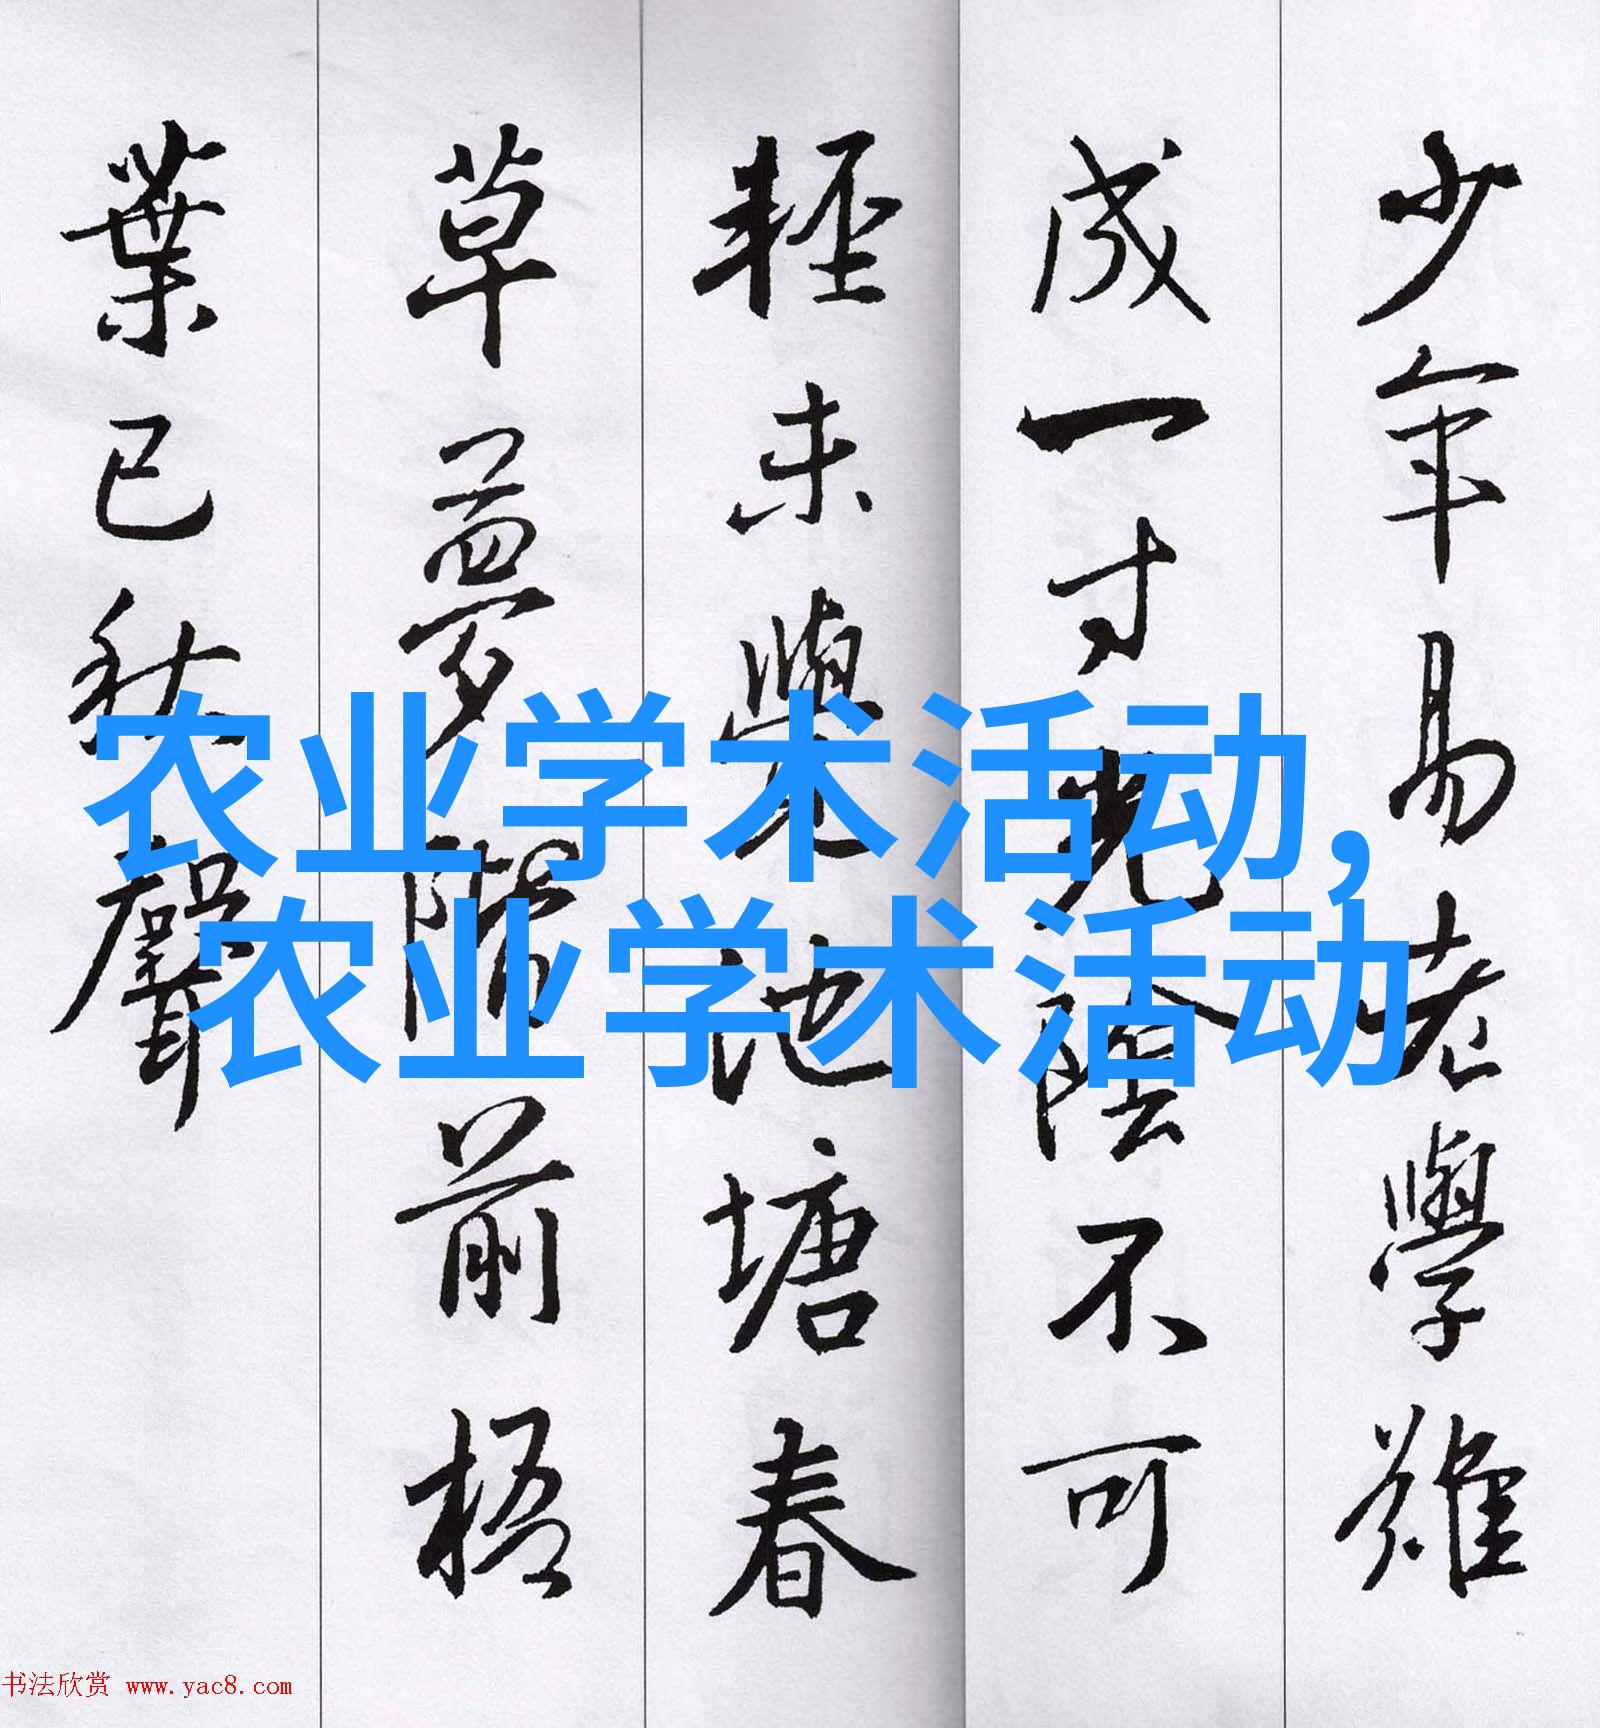 少年易老學難
成一寸光陰不可
輕未覺池塘春
草夢階前梧
葉已秋聲
农业学术活动,
农业学术活动
书法欣赏 www.yac8.com